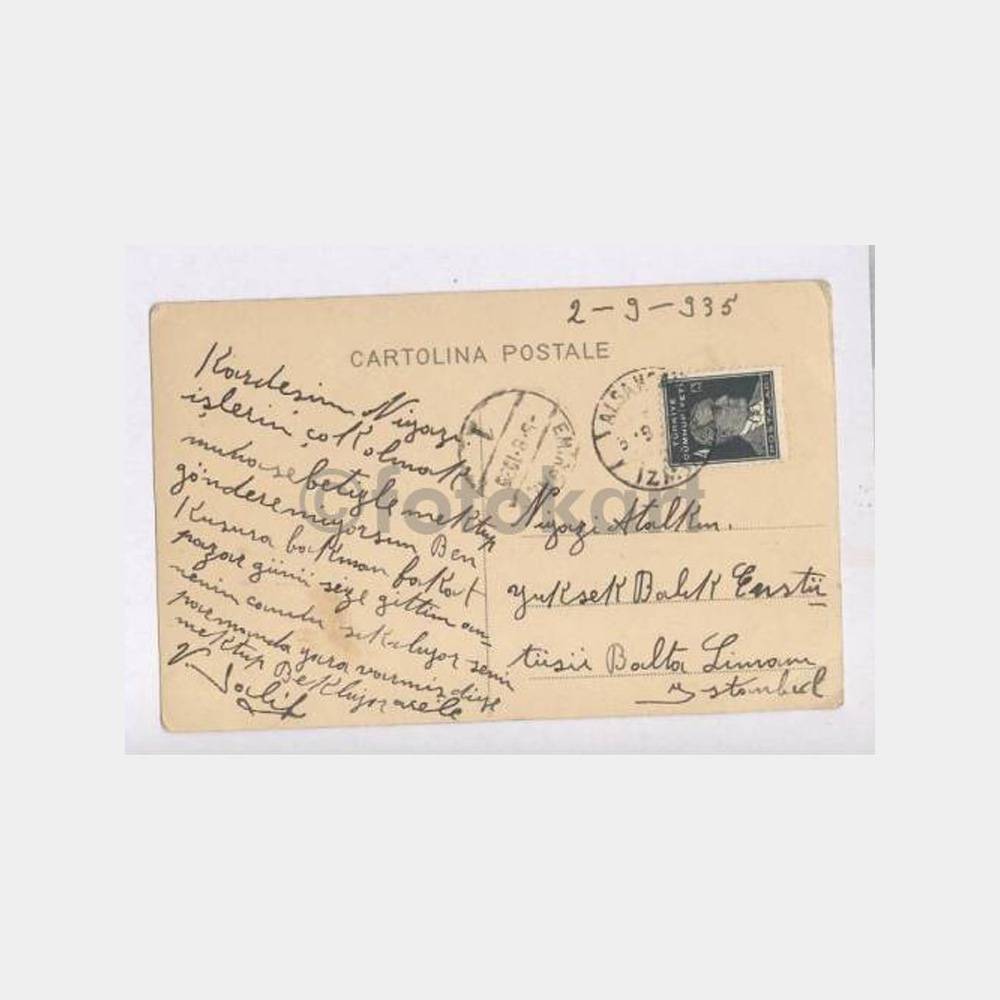 2-9-935
CARTOLINA POSTALE
Kardeşim Niyazi.
işlerin çok olmak
muhasebetiyle mektup
gönderemiyorsun Ben
Kusura bakmam fakat
pazar günü size gittim an-
nenin canı sıkılıyor senin
parmanda yara varmış diye
mektup Bekliyor acele
V. Salih
ALSANCAK
İZMİ
TÜRKİYE
CUMHURİYETİ
POSTALARI
Niyazi Atalkın.
yuksek Balık Enstü
tüsü Balta Limanı
Istanbul
©fotokart